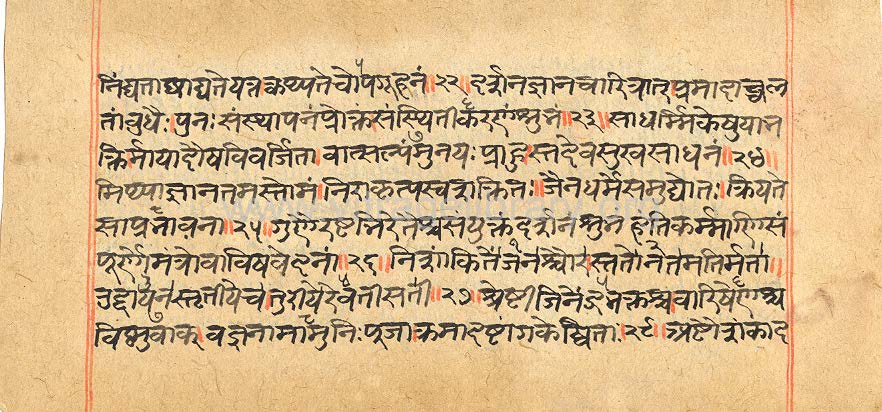 निंद्यताछाद्यतेयत्रकथ्यतेचोपगूहनं॥२२॥दर्शनज्ञानचारित्रात्प्रमादाच्चल
तांबुधैःपुनःसंस्थापनंप्रोक्तंसंस्थितीकरणंशुभं॥२३॥साधर्म्मिकेषुयान
क्तिर्मायादोषविवर्जितावात्सल्यंमुनयःप्राहुस्तदेवसुखसाधनं॥२४॥
मिथ्याज्ञानतमस्तोमंनिराकृत्यस्वशक्तितः।जैनधर्मेसमुद्योतःक्रियते
साप्रभावना॥२५॥गुणैरष्टभिरेतैश्चसंयुक्तंदर्शनंशुभंहंतिकर्म्माणिसं
पूर्णंमंत्रोवाविषवेदनां॥२६॥निशंकितें जनश्चोरस्ततोनंतमतिर्मता॥
उद्दायनस्तृतीयेचतुरीयेरेवतीसती॥२७॥श्रेष्टीजिनेंद्रभक्तश्चवारिषेणश्च
विष्णुवाक्।वज्रनामामुनिःपूजाक्रमादष्टांगकेस्थिता॥२८॥अष्टौशंकाद